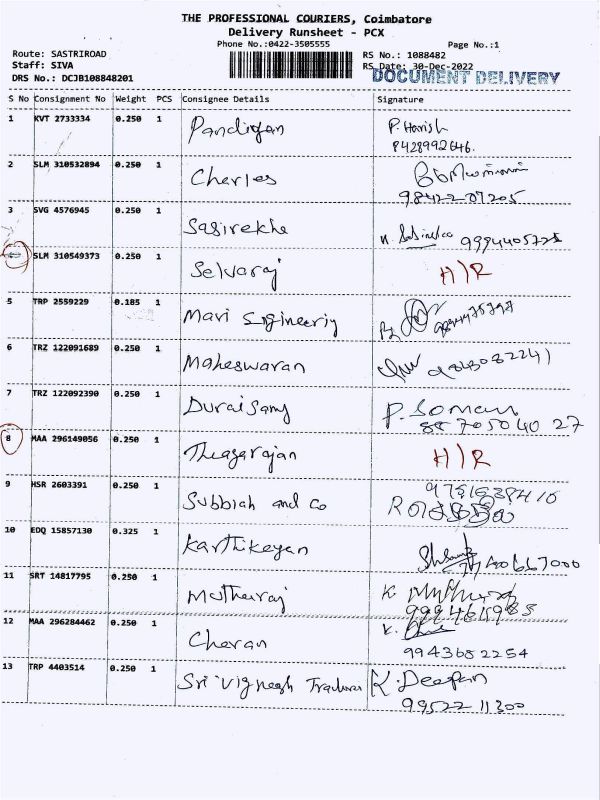 THE PROFESSIONAL COURIERS, Coimbatore
Delivery Runsheet - PCX
Phone No.:0422-3505555
Page No.:1
Route: SASTRIROAD
RS No.: 1088482
Staff: SIVA
RS Date: 30-Dec-2022
DRS No.: DCJB108848201
DOCUMENT DELIVERY
S No Consignment No Weight PCS Consignee Details Signature
1 KVT 2733334 0.250 1 P. Harish
8428992646.
2 SLM 310532894 0.250 1 Charles
98422 07205
3 SVG 4576945 0.250 1 Sasirekha
9994405725
SLM 310549373 0.250 1 Selvaraj H/R
5 TRP 2559229 0.185 1 Mari
6 TRZ 122091689 0.250 1 Maheswaran
7 TRZ 122092390 0.250 1 Duraisamy P. Soman
8870504027
8 MAA 296149056 0.250 1 Thiagarajan H/R
9 HSR 2603391 0.250 1 Subbiah and Co
10 EDQ 15857130 0.325 1 Karthikeyan
11 SRT 14817795 0.250 1 Muthuraj K
12 MAA 296284462 0.250 1 Cheran K.
9943682254
13 TRP 4403514 0.250 1 Sri Vignesh K. Deepan
99522 11300